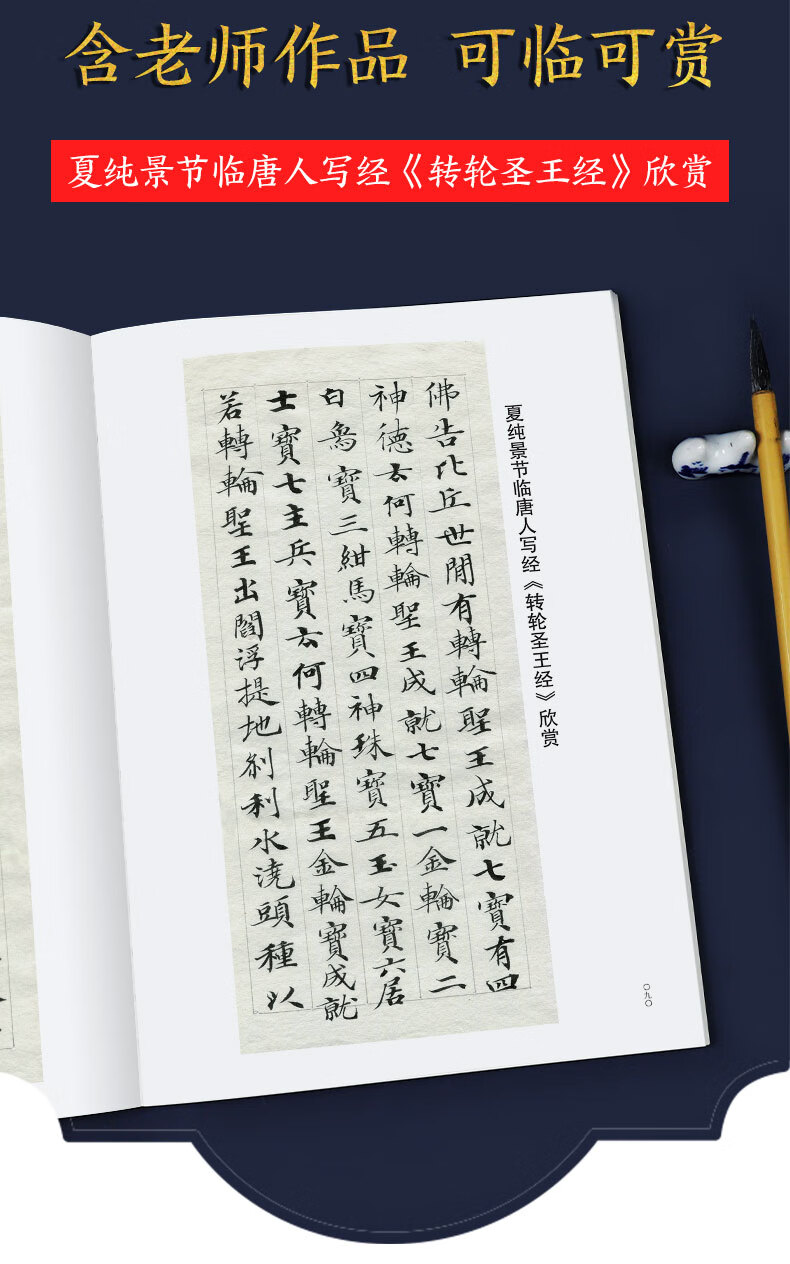 含老师作品 可临可赏
夏纯景节临唐人写经《转轮圣王经》欣赏
夏纯景节临唐人写经《转轮圣王经》欣赏
佛告比丘世間有轉輪聖王成就七寶有四
神德云何轉輪聖王成就七寶一金輪寶二
白象寶三紺馬寶四神珠寶五玉女寶六居
士寶七主兵寶云何轉輪聖王金輪寶成就
若轉輪聖王出閻浮提地剎利水澆頭種以
〇九〇